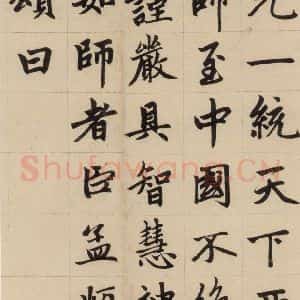 元一統天下西
師至中國不絕
謹嚴具智慧神
如師者臣孟頫
頌曰
Shufawang.CN